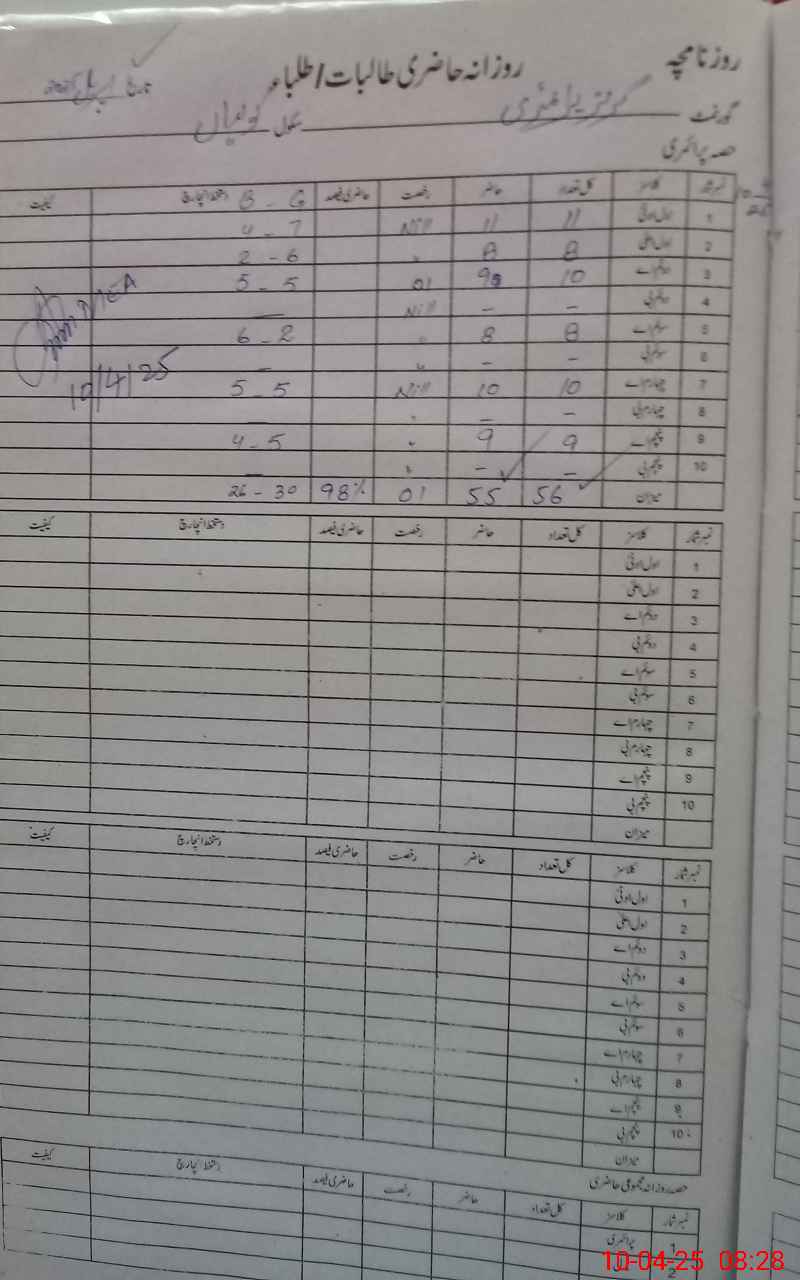 روزنامچہ
روزانہ حاضری طالبات/طلباء
تاریخ اپریل
گورنمنٹ گرلز پرائمری سکول کولیاں
حصہ پرائمری
نمبر شمار کلاسز کل تعداد حاضر رخصت حاضری فیصد دستخط انچارج B - G کیفیت
1 اول ادنیٰ 11 11 Nill 4 - 7
2 اول اعلیٰ 8 8 〃 2 - 6
3 دوئم اے 10 9 01 5 - 5
4 دوئم بی - - Nill —
5 سوئم اے 8 8 〃 6 - 2
6 سوئم بی - - 〃 —
7 چہارم اے 10 10 Nill 5 - 5
8 چہارم بی - - 〃 —
9 پنجم اے 9 9 〃 4 - 5
10 پنجم بی - - 〃 —
میزان 56 55 01 98% 26 - 30
MEA
10/4/25
نمبر شمار کلاسز کل تعداد حاضر رخصت حاضری فیصد دستخط انچارج کیفیت
1 اول ادنیٰ
2 اول اعلیٰ
3 دوئم اے
4 دوئم بی
5 سوئم اے
6 سوئم بی
7 چہارم اے
8 چہارم بی
9 پنجم اے
10 پنجم بی
میزان
نمبر شمار کلاسز کل تعداد حاضر رخصت حاضری فیصد دستخط انچارج کیفیت
1 اول ادنیٰ
2 اول اعلیٰ
3 دوئم اے
4 دوئم بی
5 سوئم اے
6 سوئم بی
7 چہارم اے
8 چہارم بی
9 پنجم اے
10 پنجم بی
میزان
حصہ روزانہ مجموعی حاضری
نمبر شمار کلاسز کل تعداد حاضر رخصت حاضری فیصد دستخط انچارج کیفیت
1 پرائمری
2
10-04-25 08:28